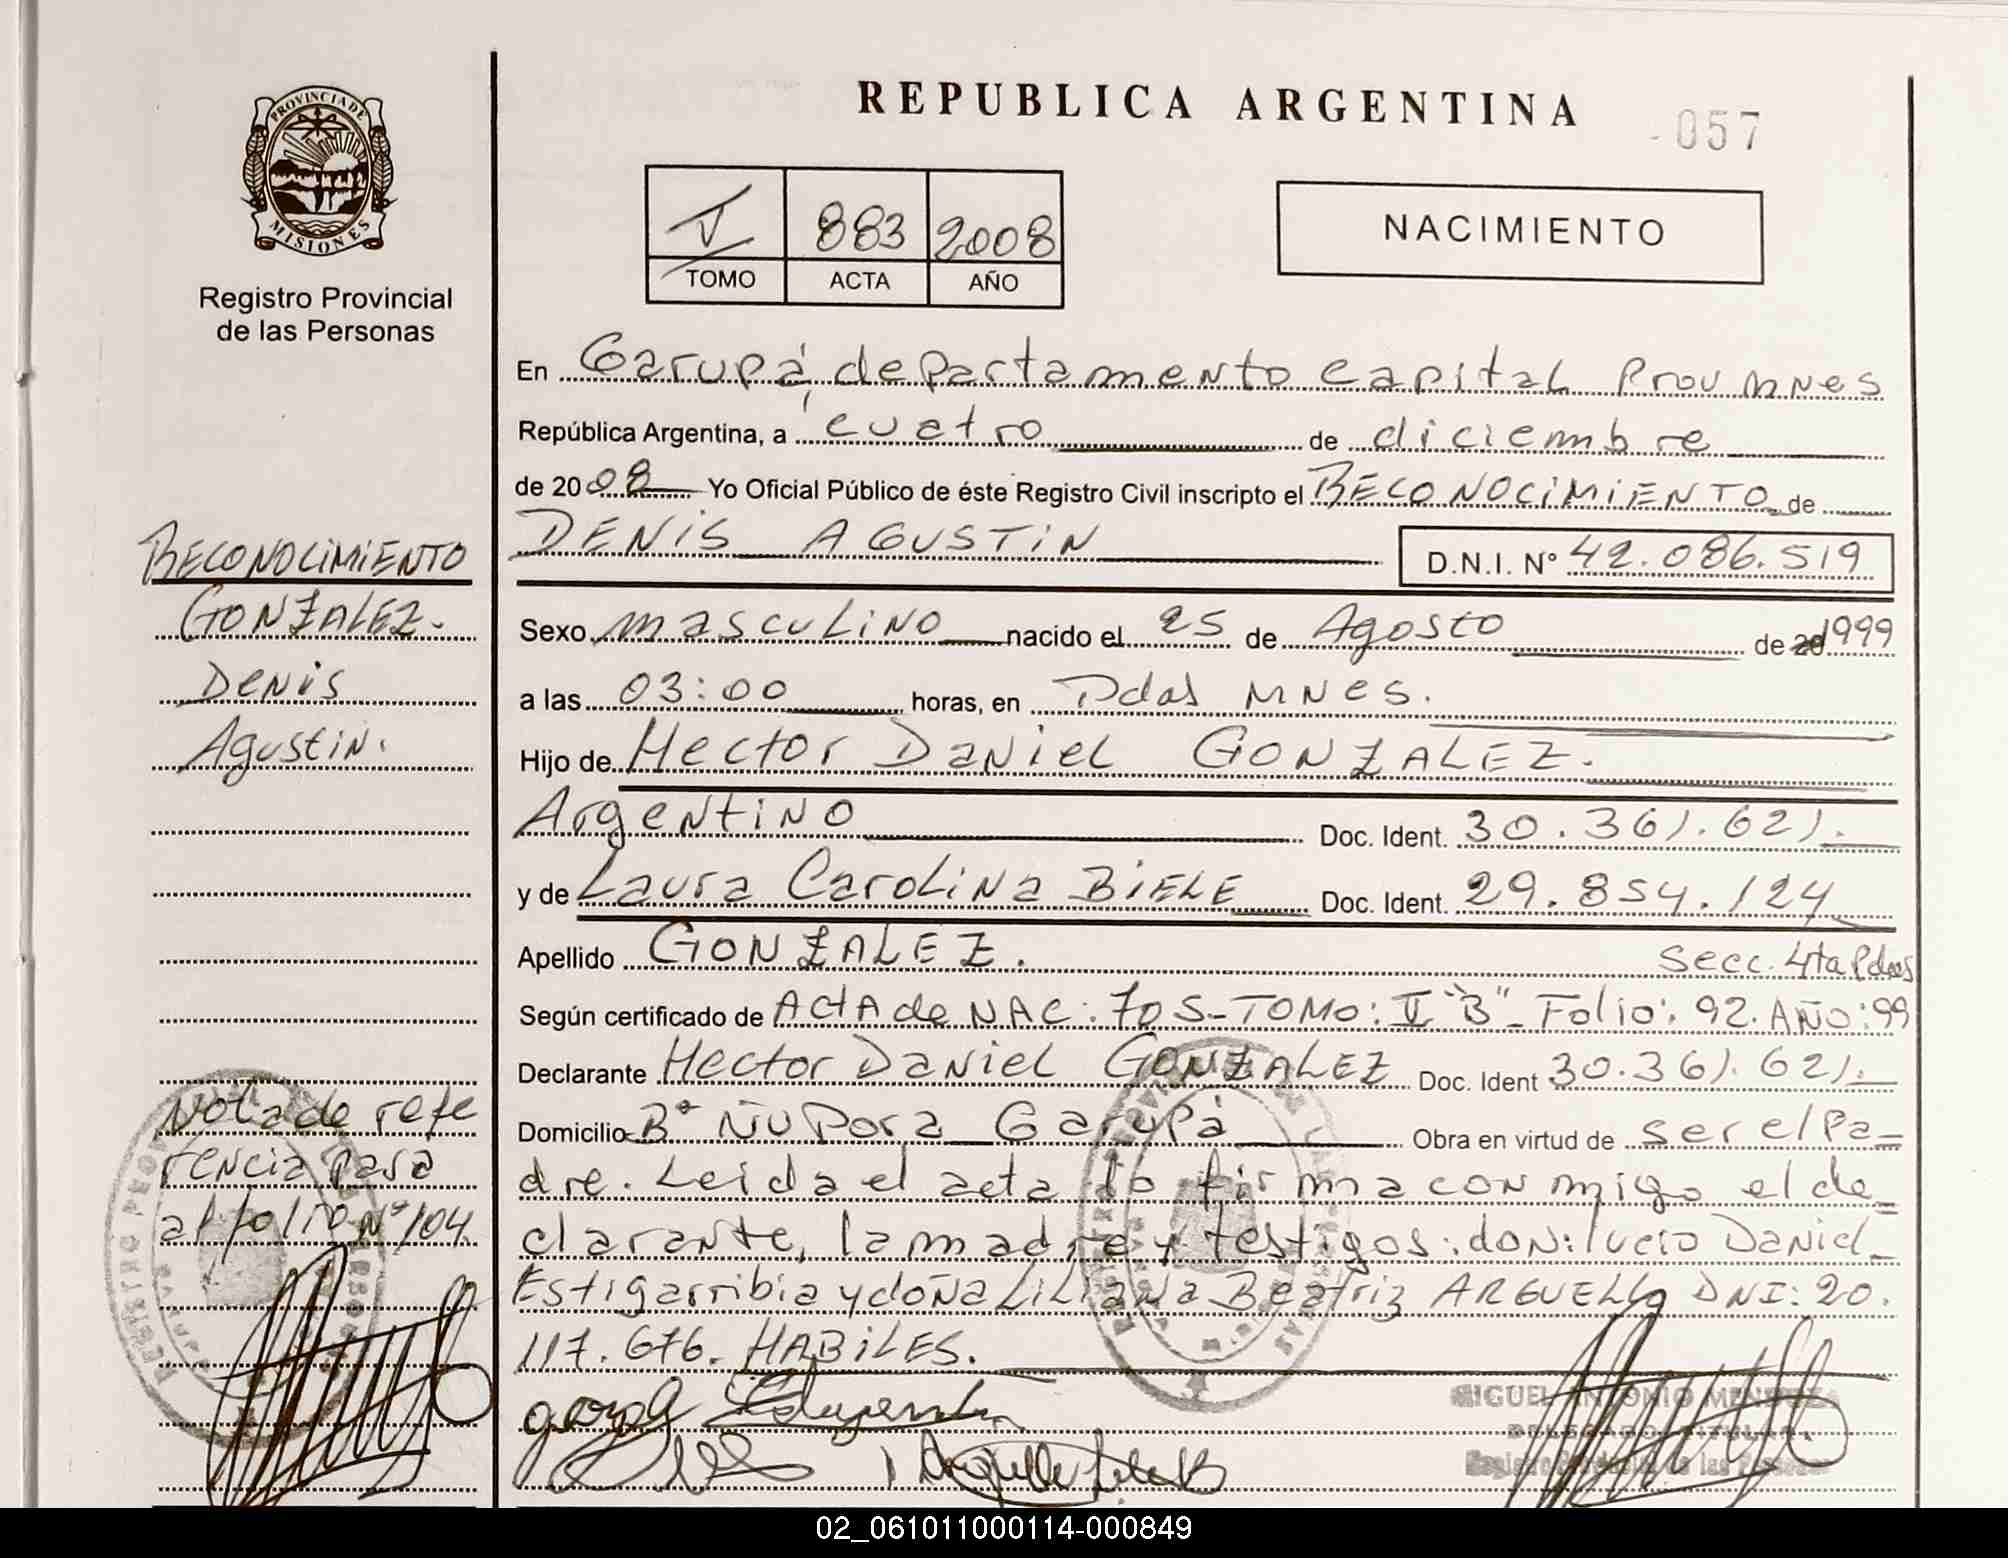 REPUBLICA ARGENTINA
057
PROVINCIA DE
MISIONES
Registro Provincial
de las Personas
V 883 2008
TOMO ACTA AÑO
NACIMIENTO
En Garupá, departamento capital Prov Mnes
República Argentina, a cuatro de diciembre
de 2008 Yo Oficial Público de éste Registro Civil inscripto el RECONOCIMIENTO de
DENIS AGUSTIN D.N.I. Nº 42.086.519
Sexo masculino nacido el 25 de Agosto de 20 1999
a las 03:00 horas, en Pdas MNes.
Hijo de Hector Daniel GONZALEZ.
Argentino Doc. Ident. 30.361.621.
y de Laura Carolina BIELE Doc. Ident. 29.854.124
Apellido GONZALEZ. Secc. 4ta Pdas
Según certificado de ActA de NAC: 705-TOMO: II "B"- Folio: 92. AÑO: 99
Declarante Hector Daniel GONZALEZ Doc. Ident 30.361.621.
Domicilio Bº Ñu Pora Garupá Obra en virtud de ser el Pa-
dre. Leida el acta lo firma conmigo el de-
clarante, la madre y testigos: don: lucio Daniel
Estigarribia y doña Liliana Beatriz ARGUELLO DNI: 20.
117.676. HABILES.
RECONOCIMIENTO
GONZALEZ.
Denis
Agustin.
Nota de refe
rencia pasa
al folio Nº 104.
MIGUEL ANTONIO MENDOZA
DELEGADO TITULAR
Registro Provincial de las Personas
02_061011000114-000849